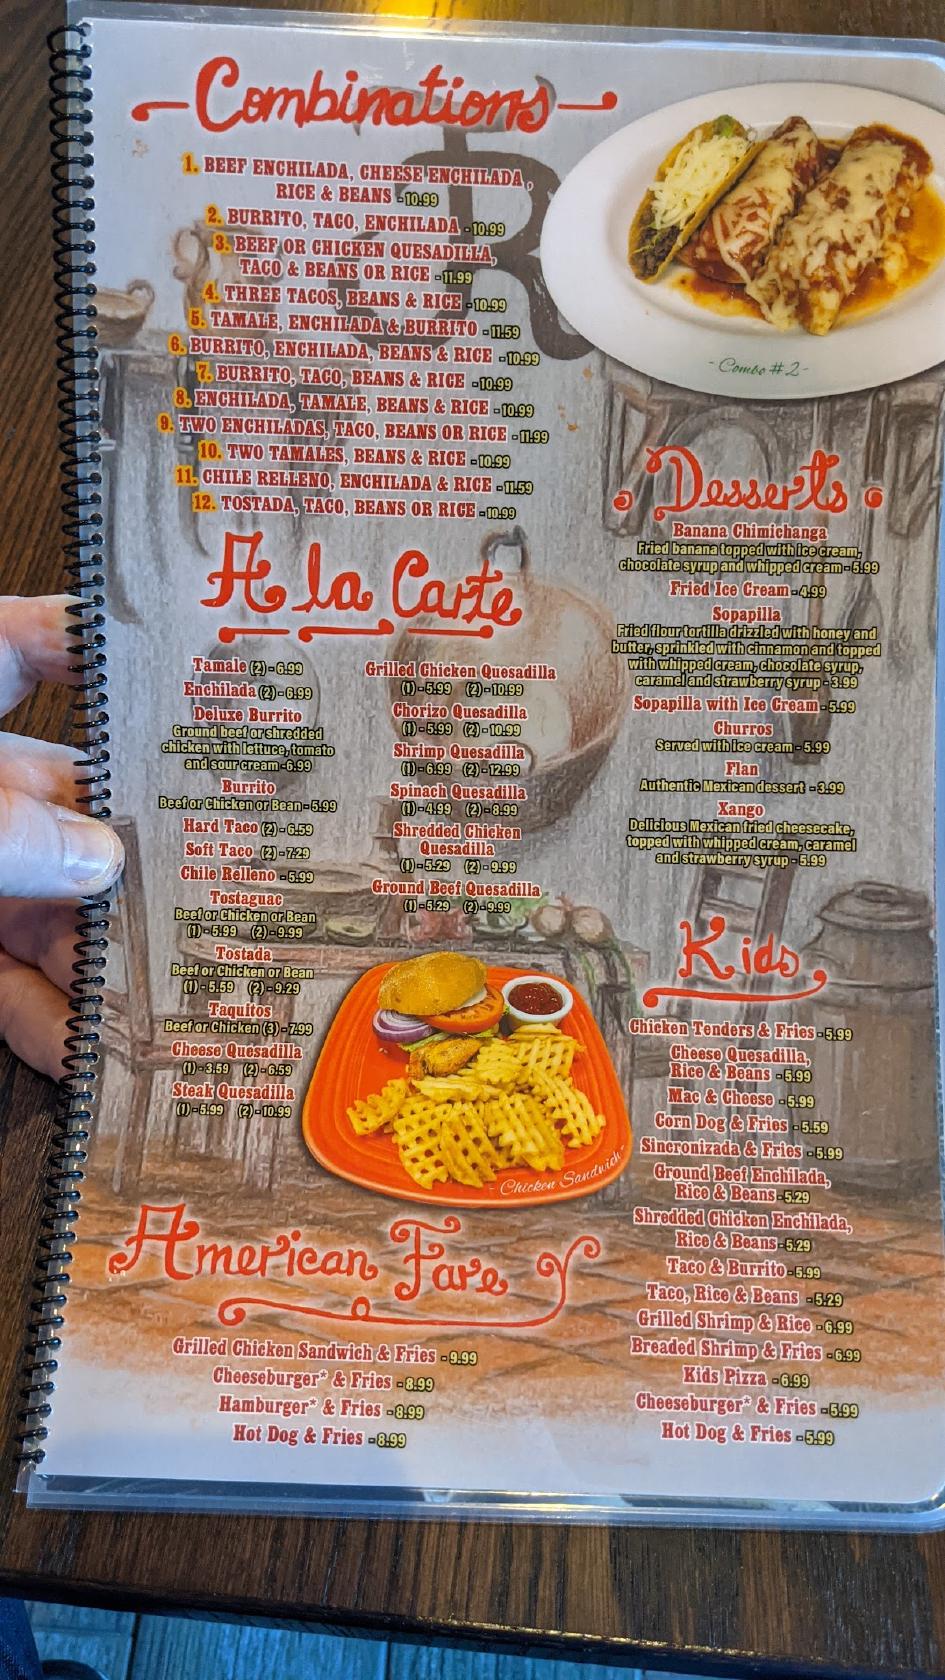 Combinations
1. BEEF ENCHILADA, CHEESE ENCHILADA,
RICE & BEANS - 10.99
2. BURRITO, TACO, ENCHILADA - 10.99
3. BEEF OR CHICKEN QUESADILLA,
TACO & BEANS OR RICE - 11.99
4. THREE TACOS, BEANS & RICE - 10.99
5. TAMALE, ENCHILADA & BURRITO - 11.59
6. BURRITO, ENCHILADA, BEANS & RICE - 10.99
7. BURRITO, TACO, BEANS & RICE - 10.99
8. ENCHILADA, TAMALE, BEANS & RICE - 10.99
9. TWO ENCHILADAS, TACO, BEANS OR RICE - 11.99
10. TWO TAMALES, BEANS & RICE - 10.99
11. CHILE RELLENO, ENCHILADA & RICE - 11.59
12. TOSTADA, TACO, BEANS OR RICE - 10.99
- Combo # 2 -
A la Carte
Tamale (2) - 6.99
Enchilada (2) - 6.99
Deluxe Burrito
Ground beef or shredded
chicken with lettuce, tomato
and sour cream - 6.99
Burrito
Beef or Chicken or Bean - 5.99
Hard Taco (2) - 6.59
Soft Taco (2) - 7.29
Chile Relleno - 5.99
Tostaguac
Beef or Chicken or Bean
(1) - 5.99 (2) - 9.99
Tostada
Beef or Chicken or Bean
(1) - 5.59 (2) - 9.29
Taquitos
Beef or Chicken (3) - 7.99
Cheese Quesadilla
(1) - 3.59 (2) - 6.59
Steak Quesadilla
(1) - 5.99 (2) - 10.99
Grilled Chicken Quesadilla
(1) - 5.99 (2) - 10.99
Chorizo Quesadilla
(1) - 5.99 (2) - 10.99
Shrimp Quesadilla
(1) - 6.99 (2) - 12.99
Spinach Quesadilla
(1) - 4.99 (2) - 8.99
Shredded Chicken
Quesadilla
(1) - 5.29 (2) - 9.99
Ground Beef Quesadilla
(1) - 5.29 (2) - 9.99
- Chicken Sandwich -
American Fare
Grilled Chicken Sandwich & Fries - 9.99
Cheeseburger* & Fries - 8.99
Hamburger* & Fries - 8.99
Hot Dog & Fries - 8.99
Desserts
Banana Chimichanga
Fried banana topped with ice cream,
chocolate syrup and whipped cream - 5.99
Fried Ice Cream - 4.99
Sopapilla
Fried flour tortilla drizzled with honey and
butter, sprinkled with cinnamon and topped
with whipped cream, chocolate syrup,
caramel and strawberry syrup - 3.99
Sopapilla with Ice Cream - 5.99
Churros
Served with ice cream - 5.99
Flan
Authentic Mexican dessert - 3.99
Xango
Delicious Mexican fried cheesecake,
topped with whipped cream, caramel
and strawberry syrup - 5.99
Kids
Chicken Tenders & Fries - 5.99
Cheese Quesadilla,
Rice & Beans - 5.99
Mac & Cheese - 5.99
Corn Dog & Fries - 5.59
Sincronizada & Fries - 5.99
Ground Beef Enchilada,
Rice & Beans - 5.29
Shredded Chicken Enchilada,
Rice & Beans - 5.29
Taco & Burrito - 5.99
Taco, Rice & Beans - 5.29
Grilled Shrimp & Rice - 6.99
Breaded Shrimp & Fries - 6.99
Kids Pizza - 6.99
Cheeseburger* & Fries - 5.99
Hot Dog & Fries - 5.99